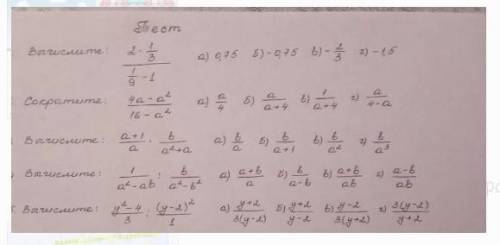 Тест
Вычислите: (2·1/3)/(1/9-1) а) 0,75 б) -0,75 в) -2/3 г) -1,5
Сократите: (4a-a²)/(16-a²) а) a/4 б) a/(a+4) в) 1/(a+4) г) a/(4-a)
Вычислите: (a+1)/a · b/(a²+a) а) b/a б) b/(a+1) в) b/a² г) b/a³
Вычислите: 1/(a²-ab) : b/(a²-b²) а) (a+b)/a б) b/(a-b) в) (a+b)/ab г) (a-b)/ab
Вычислите: (y²-4)/3 : (y-2)²/1 а) (y+2)/3(y-2) б) (y+2)/(y-2) в) (y-2)/3(y+2) г) 3(y-2)/(y+2)